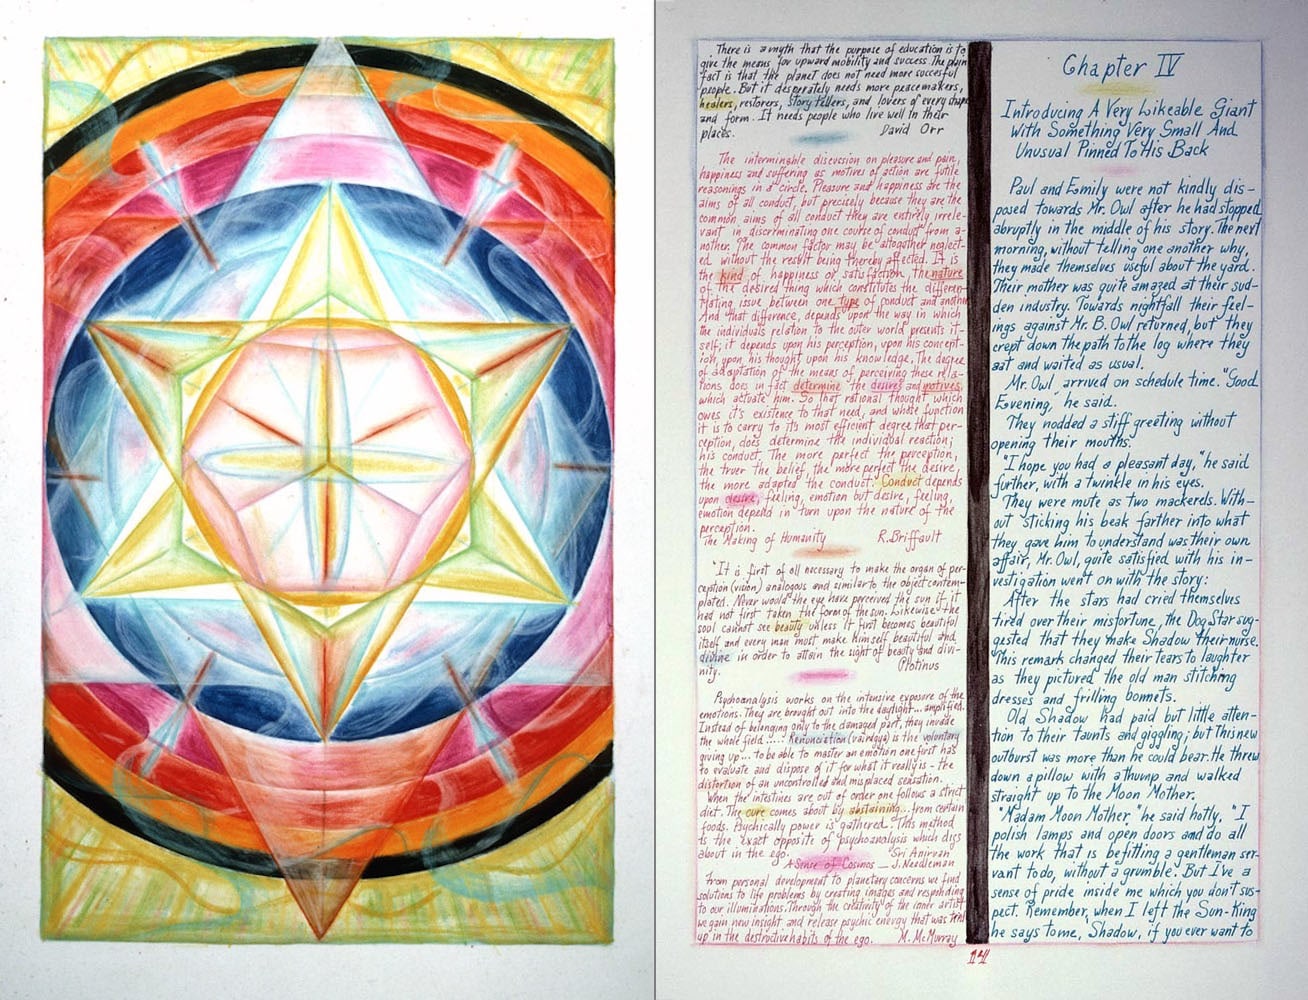 There is a myth that the purpose of education is to
give the means for upward mobility and success. The plain
fact is that the planet does not need more succesful
people. But it desperately needs more peacemakers,
healers, restorers, story tellers, and lovers of every shape
and form. It needs people who live well in their
places. David Orr
The interminable discussion on pleasure and pain,
happiness and suffering as motives of action are futile
reasonings in a circle. Pleasure and happiness are the
aims of all conduct, but precisely because they are the
common aims of all conduct they are entirely irrele-
vant in discriminating one course of conduct from a-
nother. The common factor may be altogether neglect-
ed without the result being thereby affected. It is
the kind of happiness or satisfaction, the nature
of the desired thing which constitutes the differen-
tiating issue between one type of conduct and another
And that difference, depends upon the way in which
the individuals relation to the outer world presents it-
self; it depends upon his perception, upon his concept-
ion, upon his thought upon his knowledge. The degree
of adaptation of the means of perceiving these rela-
tions does in fact determine the desires and motives,
which actuate him. So that rational thought which
owes its existence to that need, and whose function
it is to carry to its most efficient degree that per-
ception, does determine the individual reaction;
his conduct. The more perfect the perception,
the truer the belief, the more perfect the desire,
the more adapted the conduct. Conduct depends
upon desire, feeling, emotion but desire, feeling,
emotion depend in turn upon the nature of the
perception.
The Making of Humanity R. Briffault
"It is first of all necessary to make the organ of per-
ception (vision) analogous and similar to the object contem-
plated. Never would the eye have perceived the sun if it
had not first taken the form of the sun. Likewise the
soul cannot see beauty unless it first becomes beautiful
itself and every man must make himself beautiful and
divine in order to attain the sight of beauty and divi-
nity. Plotinus
Psychoanalysis works on the intensive exposure of the
emotions. They are brought out into the daylight... amplified.
Instead of belonging only to the damaged part, they invade
the whole field..... Renunciation (vairagya) is the voluntary
giving up... to be able to master an emotion one first has
to evaluate and dispose of it for what it really is - the
distortion of an uncontrolled and misplaced sensation.
When the intestines are out of order one follows a strict
diet. The cure comes about by abstaining... from certain
foods. Psychically power is gathered. This method
is the exact opposite of psychoanalysis which digs
about in the ego. "Sri Anirvan"
A Sense of Cosmos — J. Needleman
From personal development to planetary concerns we find
solutions to life problems by creating images and responding
to our illuminations. Through the creativity of the inner artist
we gain new insight and release psychic energy that was tied
up in the destructive habits of the ego. M. McMurray
Chapter IV
Introducing A Very Likeable Giant
With Something Very Small And
Unusual Pinned To His Back
Paul and Emily were not kindly dis-
posed towards Mr. Owl after he had stopped
abruptly in the middle of his story. The next
morning, without telling one another why,
they made themselves useful about the yard.
Their mother was quite amazed at their sud-
den industry. Towards nightfall their feel-
ings against Mr. B. Owl returned, but they
crept down the path to the log where they
sat and waited as usual.
Mr. Owl, arrived on schedule time. "Good
Evening," he said.
They nodded a stiff greeting without
opening their mouths.
"I hope you had a pleasant day," he said
further, with a twinkle in his eyes.
They were mute as two mackerels. With-
out sticking his beak farther into what
they gave him to understand was their own
affair, Mr. Owl, quite satisfied with his in-
vestigation went on with the story:
After the stars had cried themselves
tired over their misfortune, the Dog Star sug-
gested that they make Shadow their nurse.
This remark changed their tears to laughter
as they pictured the old man stitching
dresses and frilling bonnets.
Old Shadow had paid but little atten-
tion to their taunts and giggling; but this new
outburst was more than he could bear. He threw
down a pillow with a thump and walked
straight up to the Moon Mother.
"Madam Moon Mother," he said hotly, "I
polish lamps and open doors and do all
the work that is befitting a gentleman ser-
vant to do, without a grumble. But I've a
sense of pride inside me which you don't sus-
pect. Remember, when I left the Sun-King
he says to me, 'Shadow, if you ever want to